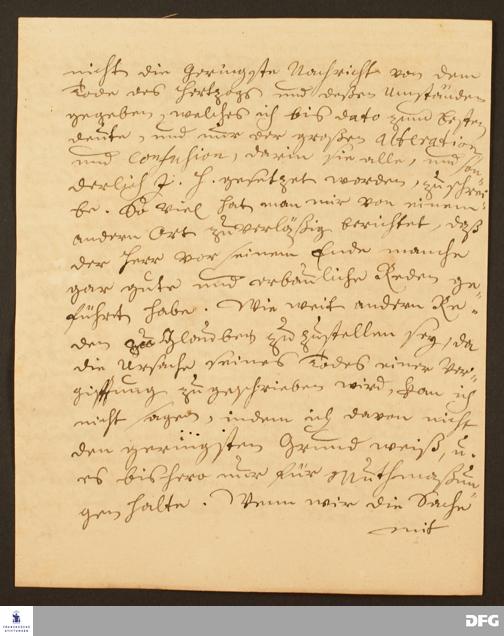 nicht die geringste Nachricht von dem
Tode des Hertzogs und deßen Umständen
gegeben, welches ich bis dato zum besten
deute, und nur der großen Alteration
und Confusion, darin sie alle, und son-
derlich J. H. gesetzet worden, zuschrei-
be. So viel hat man mir von einem
andern Ort zuverläßig berichtet, daß
der Herr vor seinem Ende manche
gar gute und erbauliche Reden ge-
führt habe. Wie weit andern Re-
den zu Glauben zuzustellen sey, da
die Ursache seines Todes einer Ver-
gifftung zugeschrieben wird, kan ich
nicht sagen, indem ich davon nicht
den geringsten Grund weiß, u.
es bishero nur für Muthmaßun-
gen halte. Wenn wir die Sache
mit
FRANCKESCHE
STIFTUNGEN
DFG